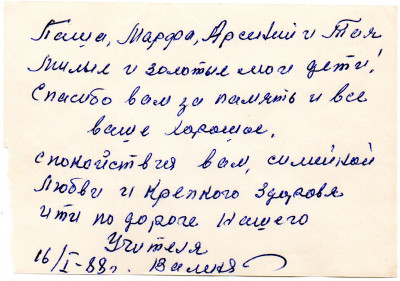 Паша, Марфа, Арсений и Тая
Милые и золотые мои дети!
Спасибо вам за память и все
ваше хорошое,
спокойствия вам, симейной
Любви и Крепкого Здоровя
ити по дороге нашего
Учителя
16/I-88г. Валиня